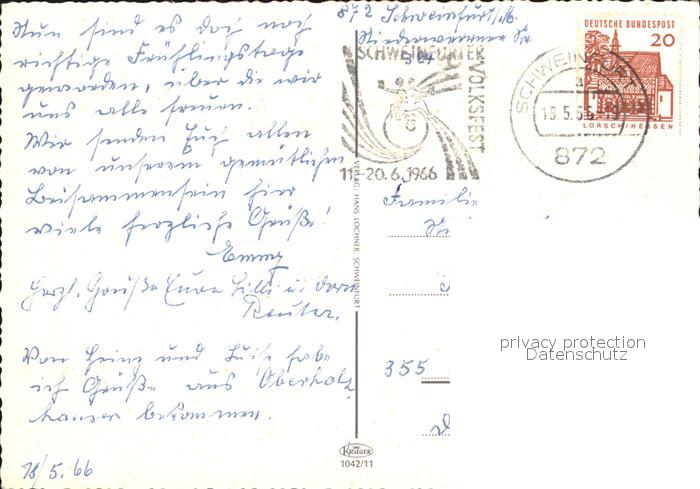 Nun sind es doch noch
richtige Frühlingstage
geworden, über die wir
uns alle freuen.
Wir senden Euch allen
von unserem gemütlichen
Beisammensein hier
viele herzliche Grüße!
Emmy
Herzl. Grüße Eure Lilli u. Dora
Reuter.
Von Heinz und Luise habe
ich Grüße aus Oberholz
hausen bekommen.
18/5.66
872 Schweinfurt/M.
Niederwerrner Str
SCHWEINFURTER
VOLKSFEST
11.-20.6.1966
SCHWEINFURT
a
18.5.66
872
DEUTSCHE BUNDESPOST
20
LORSCH/HESSEN
Familie
355
VERLAG: HANS LOCHNER, SCHWEINFURT
KRÜGER
1042/11
privacy protection
Datenschutz